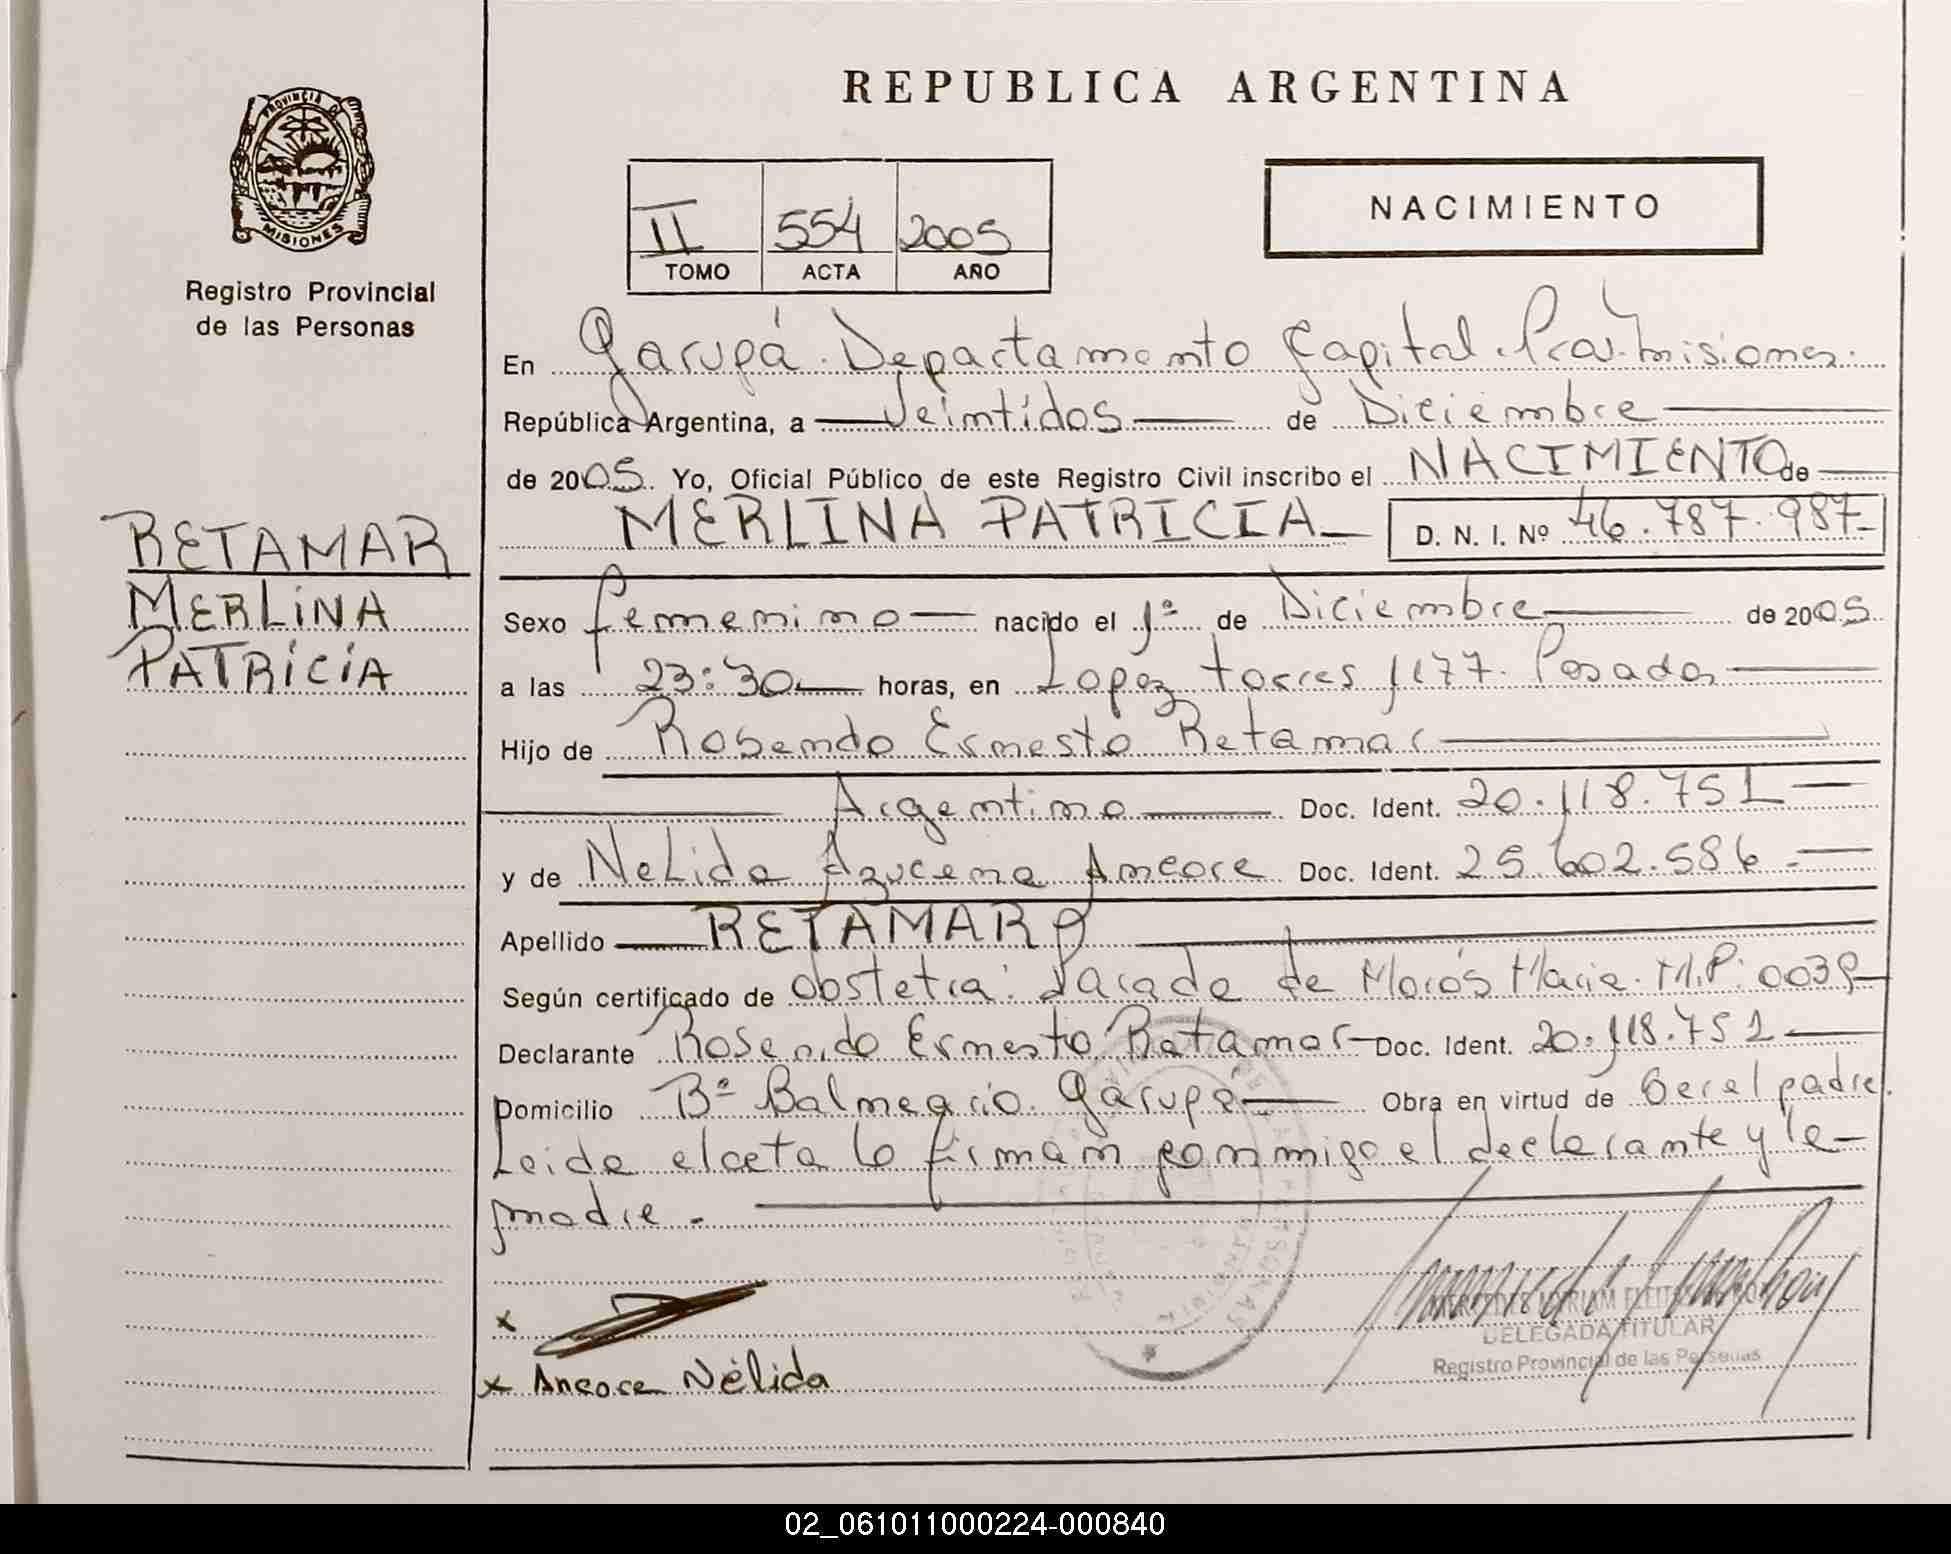 REPUBLICA ARGENTINA
PROVINCIA DE MISIONES
Registro Provincial
de las Personas
II 554 2005
TOMO ACTA AÑO
NACIMIENTO
En Garupá. Departamento Capital. Misiones.
República Argentina, a Veintidos de Diciembre
de 2005. Yo, Oficial Público de este Registro Civil inscribo el NACIMIENTO de
MERLINA PATRICIA D. N. I. Nº 46.787.987
RETAMAR
MERLINA
PATRICIA
Sexo femenino nacido el 1º de Diciembre de 2005
a las 23:30 horas, en Lopez Torres 1177. Posadas
Hijo de Rosendo Ernesto Retamar
Argentino Doc. Ident. 20.118.751
y de Nelida Azucena Ancore Doc. Ident. 25.602.586
Apellido RETAMAR
Según certificado de Obstetra: de Morós Maria. M.P: 0039
Declarante Rosendo Ernesto Retamar Doc. Ident. 20.118.751
Domicilio Bº Balneario. Garupá Obra en virtud de Ser el padre.
Leida el acta la firman conmigo el declarante y la
madre.
x
x Ancore Nélida
DELEGADA TITULAR
Registro Provincial de las Personas
02_061011000224-000840